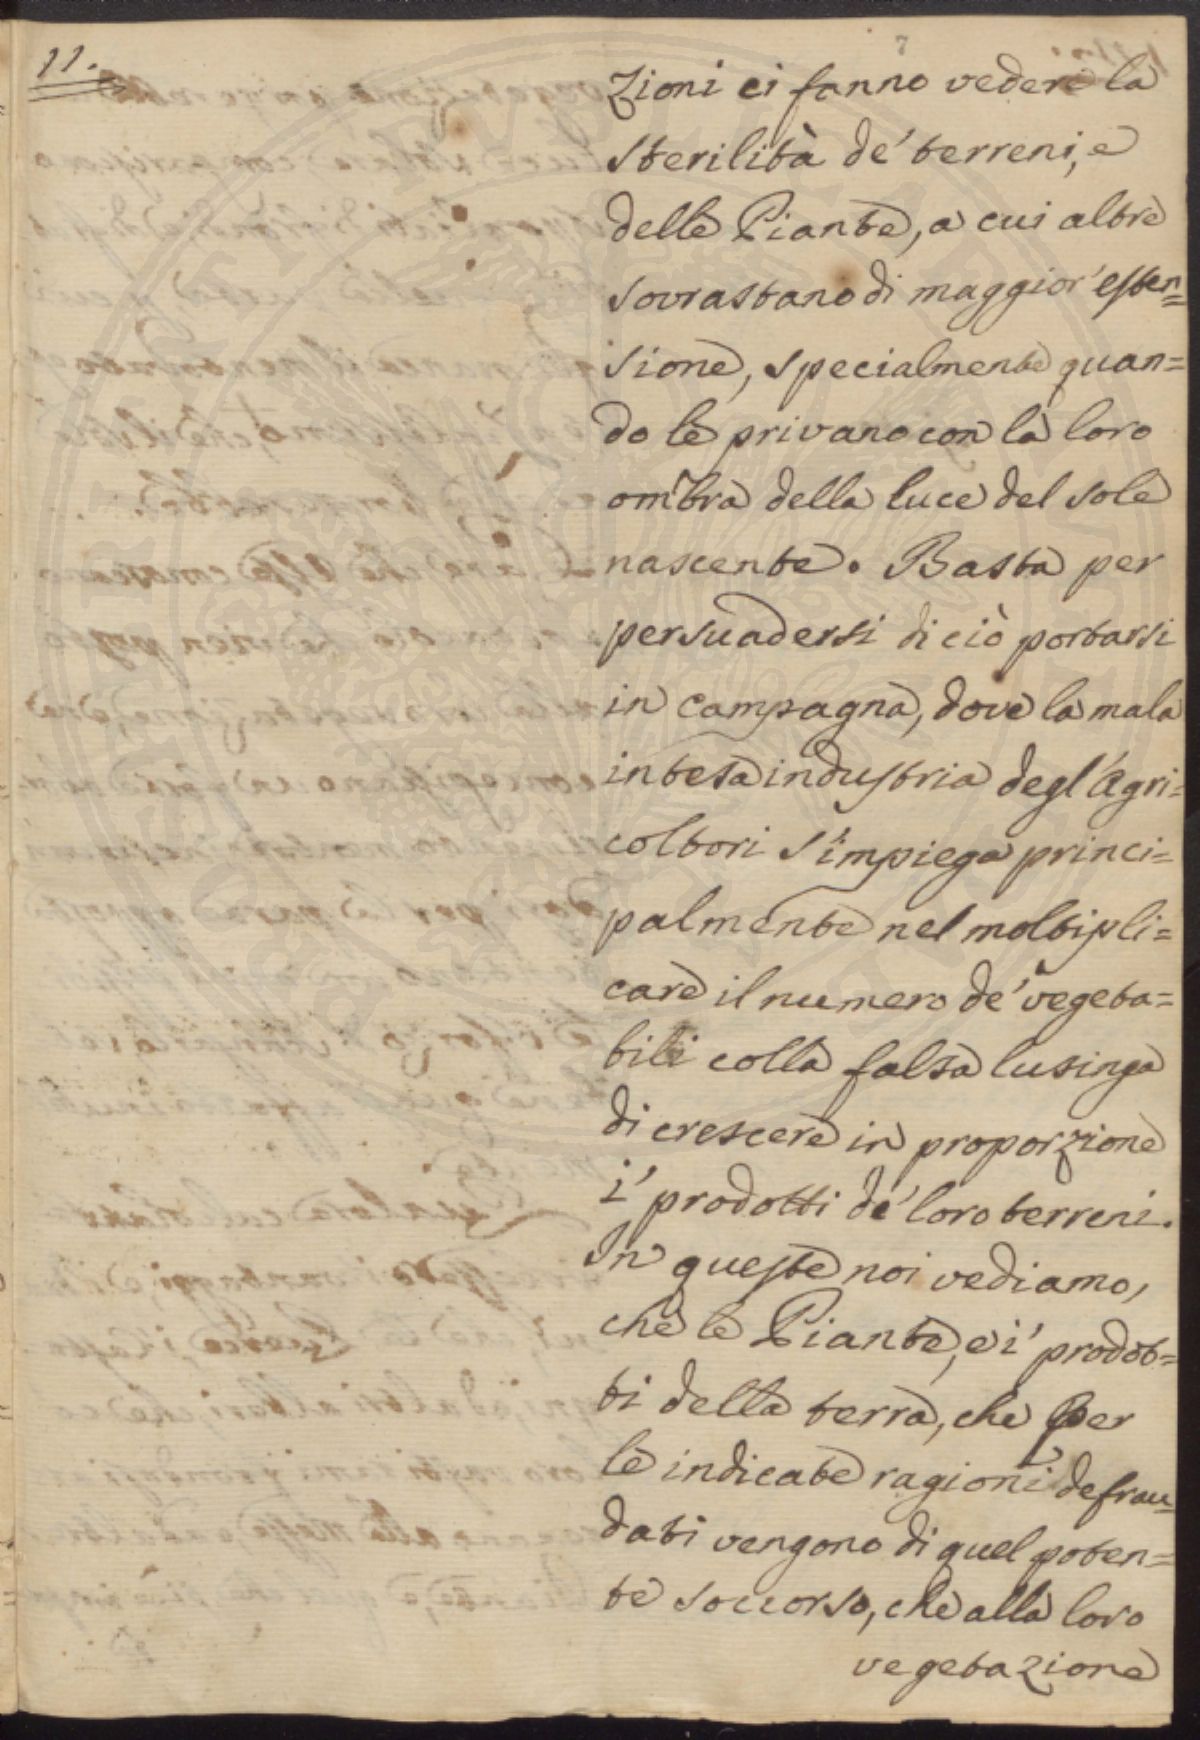 11.
7
zioni ci fanno vedere la
sterilità de' terreni, e
delle Piante, a cui altre
sovrastano di maggior' esten=
sione, specialmente quan=
do le privano con la loro
ombra della luce del sole
nascente. Basta per
persuadersi di ciò portarsi
in campagna, dove la mala
intesa industria degl' Agri=
coltori s'impiega princi=
palmente nel moltipli=
care il numero de' vegeta=
bili colla falsa lusinga
di crescere in proporzione
i' prodotti de' loro terreni.
In queste noi vediamo,
che le Piante, e i' prodot=
ti della terra, che per
le indicate ragioni defrau=
dati vengono di quel poten=
te soccorso, che alla loro
vegetazione